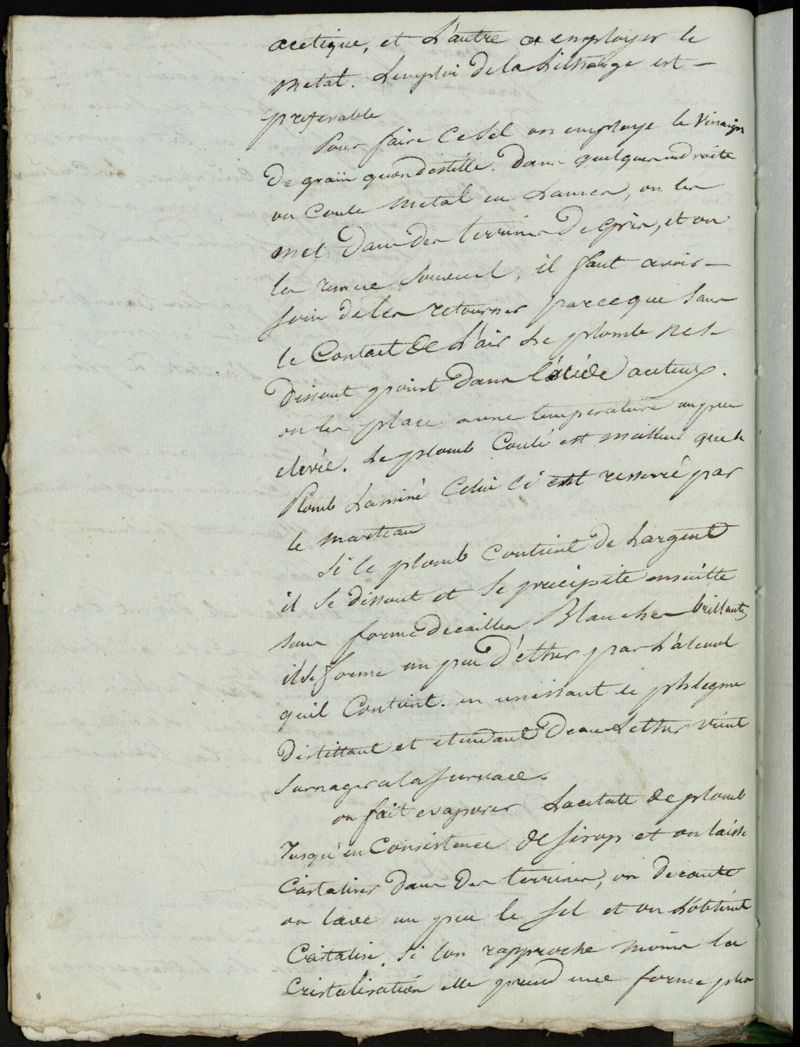 acetique, et l'autre a employer le
metal. L'emploi de la Litharge est –
preferable
Pour faire ce sel on employe le vinaigre
de grain quon destille. Dans quelques endroits
on coule metal en Lames, on les
met dans des terrines de grès, et on
les remue souvent, il faut avoir –
soin de les retourner parceque sans
le contact de l'air le plomb ne se
dissout point dans l'acide aceteux.
on les place a une temperature un peu
elevée. Le plomb coulé est meilleur que le
Plomb Laminé celui ci est resserré par
le marteau
Si le plomb contient de l'argent
il se dissout et se precipite ensuitte
sous forme decailles Blanches brillantes
il se forme un peu d'ether par l'alcool
quil contient. en unissant le phlegme
distillant et etendant deau Lether vient
surnager a la surface.
on fait evaporer Lacetate de plomb
Jusqu'en Consistence de sirop et on laisse
Cristaliser dans des terrines, on decante
on lave un peu le sel et on l'obtient
Cristalisé. Si lon rapproche moins la
Cristalisation elle prend une forme plus